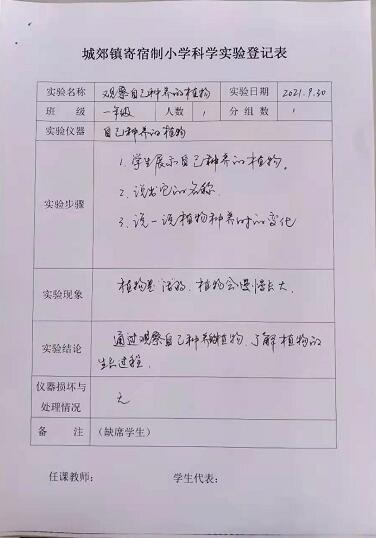 城郊镇寄宿制小学科学实验登记表
实验名称 观察自己种养的植物 实验日期 2021.9.30
班 级 一年级 人数 1 分组数 1
实验仪器 自己种养的植物
实验步骤
1. 学生展示自己种养的植物。
2. 说出它的名称.
3. 说一说植物种养时的变化
实验现象 植物是活的. 植物会慢慢长大.
实验结论 通过观察自己种养的植物. 了解植物的
生长过程.
仪器损坏与
处理情况 无
备 注 (缺席学生)
任课教师: 学生代表: